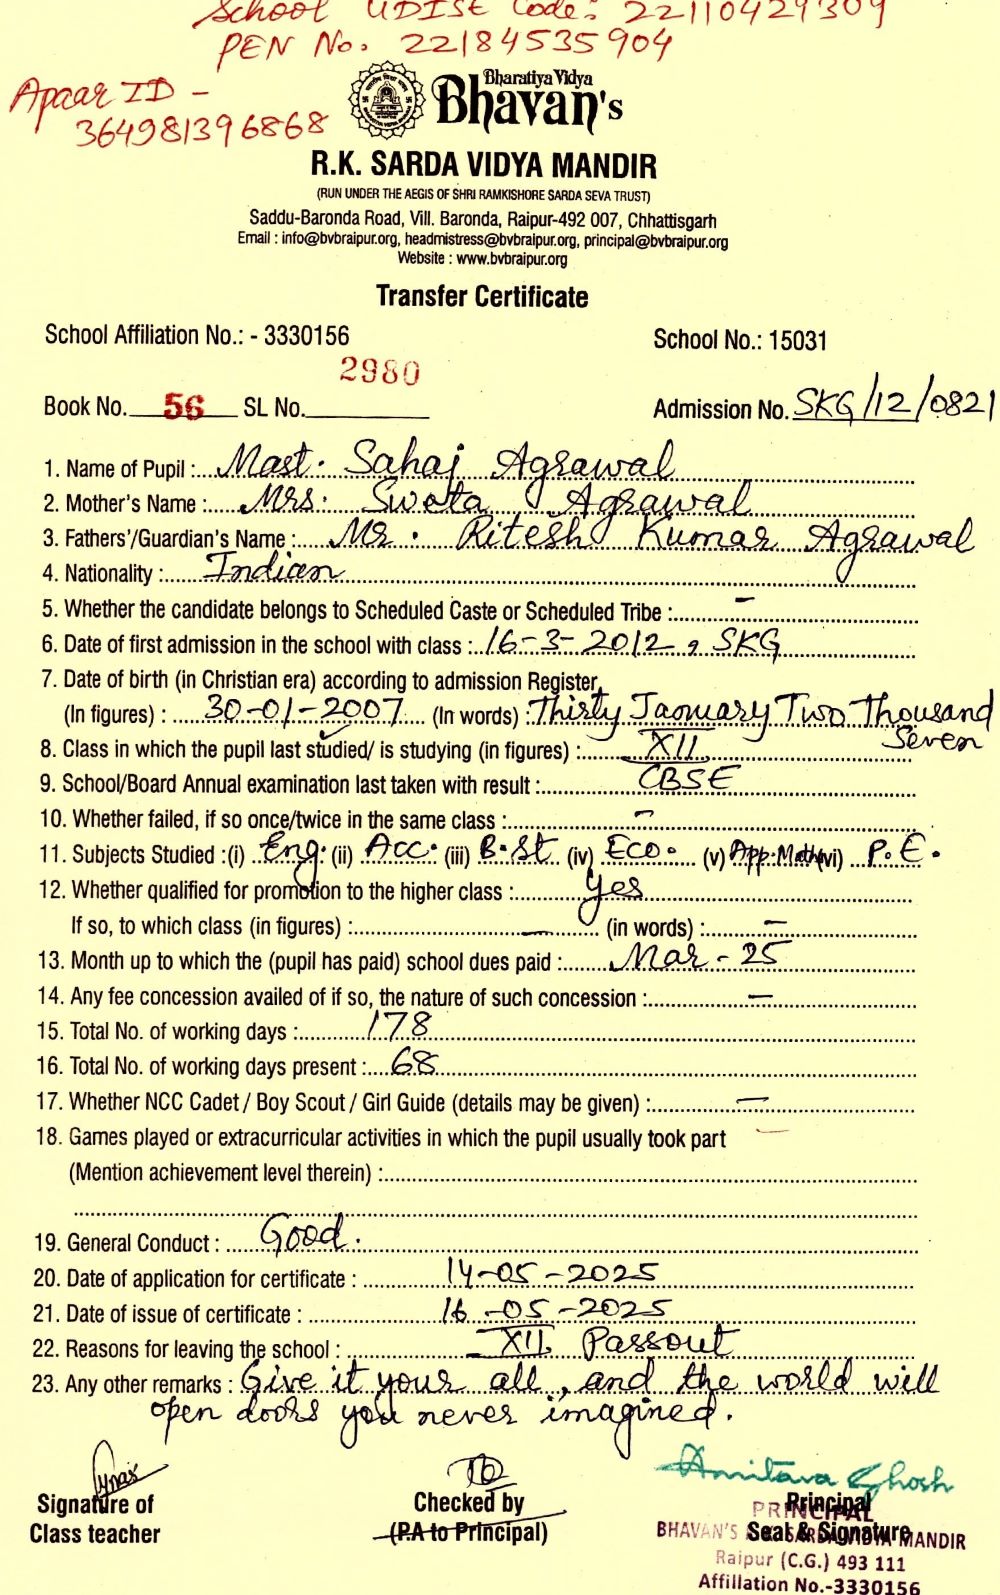 School UDISE Code: 22110429309
PEN No. 22184535904
Apaar ID -
364981396868
Bharatiya Vidya
Bhavan's
R.K. SARDA VIDYA MANDIR
(RUN UNDER THE AEGIS OF SHRI RAMKISHORE SARDA SEVA TRUST)
Saddu-Baronda Road, Vill. Baronda, Raipur-492 007, Chhattisgarh
Email : info@bvbraipur.org, headmistress@bvbraipur.org, principal@bvbraipur.org
Website : www.bvbraipur.org
Transfer Certificate
School Affiliation No.: - 3330156 School No.: 15031
2980
Book No. 56 SL No. Admission No. SKG/12/0821
1. Name of Pupil : Mast. Sahaj Agrawal
2. Mother's Name : Mrs. Sweta Agrawal
3. Fathers'/Guardian's Name : Mr. Ritesh Kumar Agrawal
4. Nationality : Indian
5. Whether the candidate belongs to Scheduled Caste or Scheduled Tribe : -
6. Date of first admission in the school with class : 16-3-2012, SKG
7. Date of birth (in Christian era) according to admission Register,
(In figures) : 30-01-2007 (In words) : Thirty Jaonuary Two Thousand
Seven
8. Class in which the pupil last studied/ is studying (in figures) : XII
9. School/Board Annual examination last taken with result : CBSE
10. Whether failed, if so once/twice in the same class : -
11. Subjects Studied :(i) Eng. (ii) Acc. (iii) B.St (iv) Eco. (v) App.Math (vi) P.E.
12. Whether qualified for promotion to the higher class : Yes
If so, to which class (in figures) : - (in words) : -
13. Month up to which the (pupil has paid) school dues paid : Mar-25
14. Any fee concession availed of if so, the nature of such concession : -
15. Total No. of working days : 178
16. Total No. of working days present : 68
17. Whether NCC Cadet / Boy Scout / Girl Guide (details may be given) : -
18. Games played or extracurricular activities in which the pupil usually took part -
(Mention achievement level therein) :
19. General Conduct : Good.
20. Date of application for certificate : 14-05-2025
21. Date of issue of certificate : 16-05-2025
22. Reasons for leaving the school : XII Passout
23. Any other remarks : Give it your all, and the world will
open doors you never imagined.
Amitava Ghosh
Signature of Checked by Principal
Class teacher (P.A to Principal) Seal & Signature
PRINCIPAL
BHAVAN'S R.K. SARDA VIDYA MANDIR
Raipur (C.G.) 493 111
Affillation No.-3330156